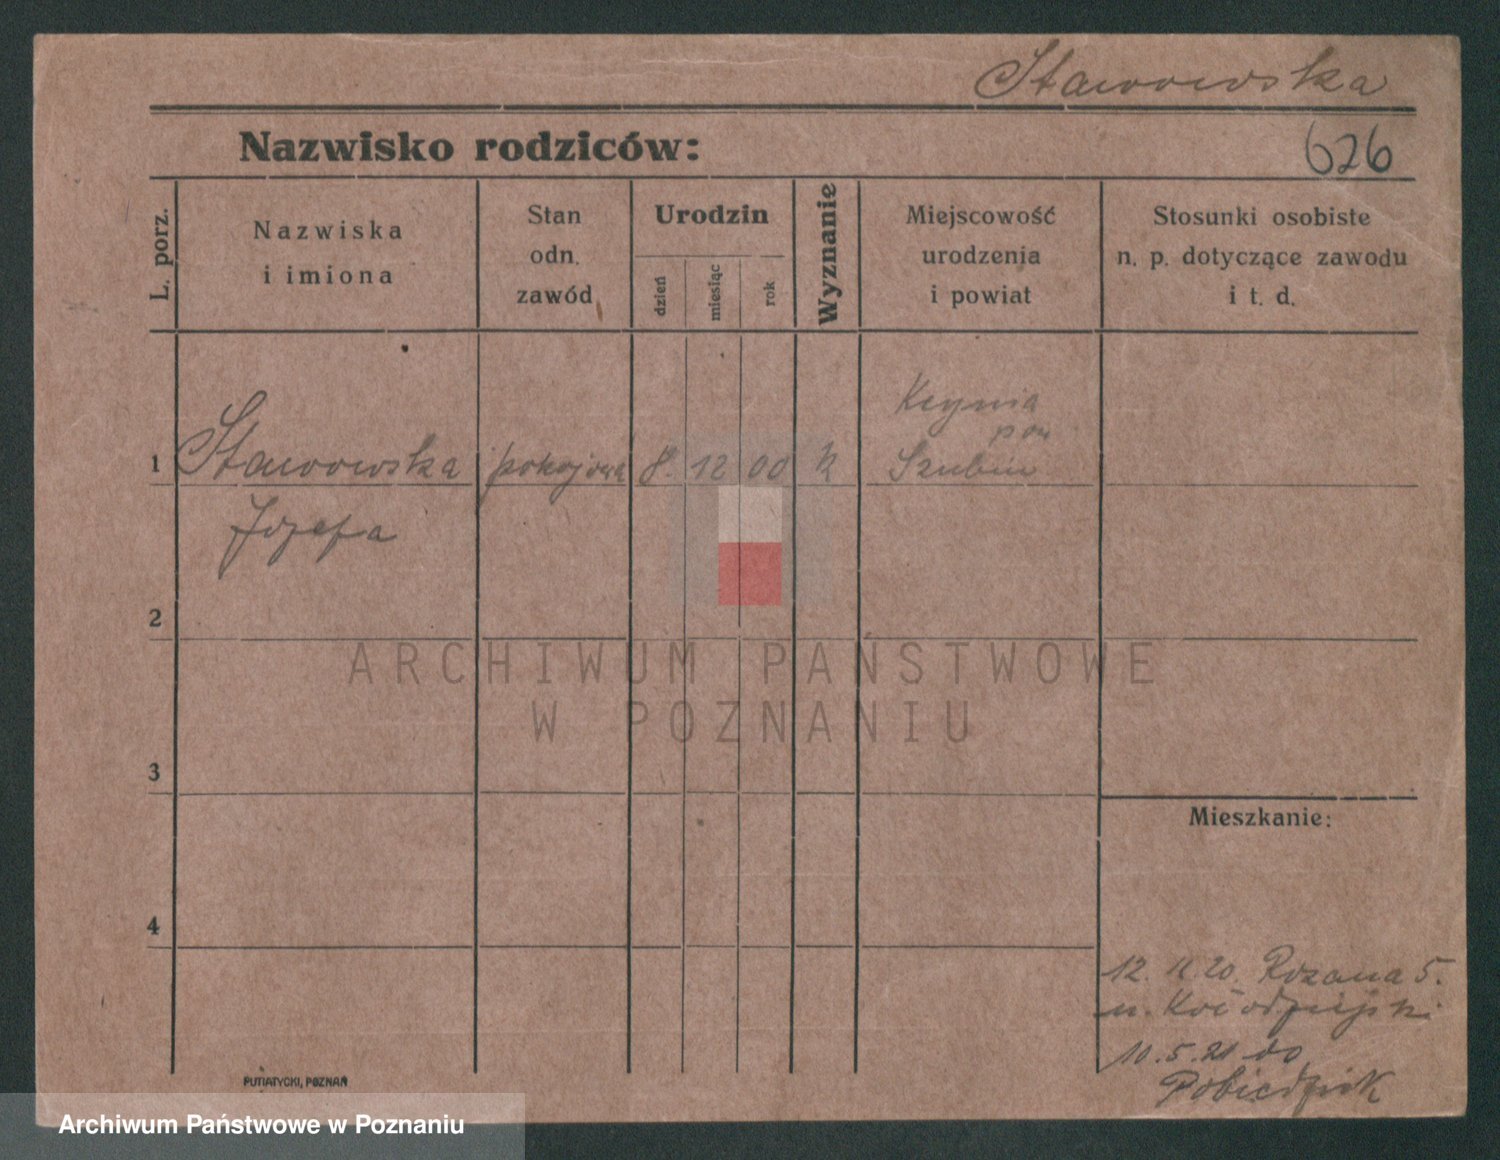 Stawowska
Nazwisko rodziców:
626
L. porz.
Nazwiska
i imiona
Stan
odn.
zawód
Urodzin
dzień
miesiąc
rok
Wyznanie
Miejscowość
urodzenia
i powiat
Stosunki osobiste
n. p. dotyczące zawodu
i t. d.
Kcynia
pow
1 Stawowska pokojowa 8. 12 00 k Szubin
Józefa
2
ARCHIWUM PAŃSTWOWE
W POZNANIU
3
Mieszkanie:
4
12. 11. 20. Rozana 5.
u.
10. 5. 21 do
Pobiedzisk
PUTIATYCKI, POZNAŃ
Archiwum Państwowe w Poznaniu